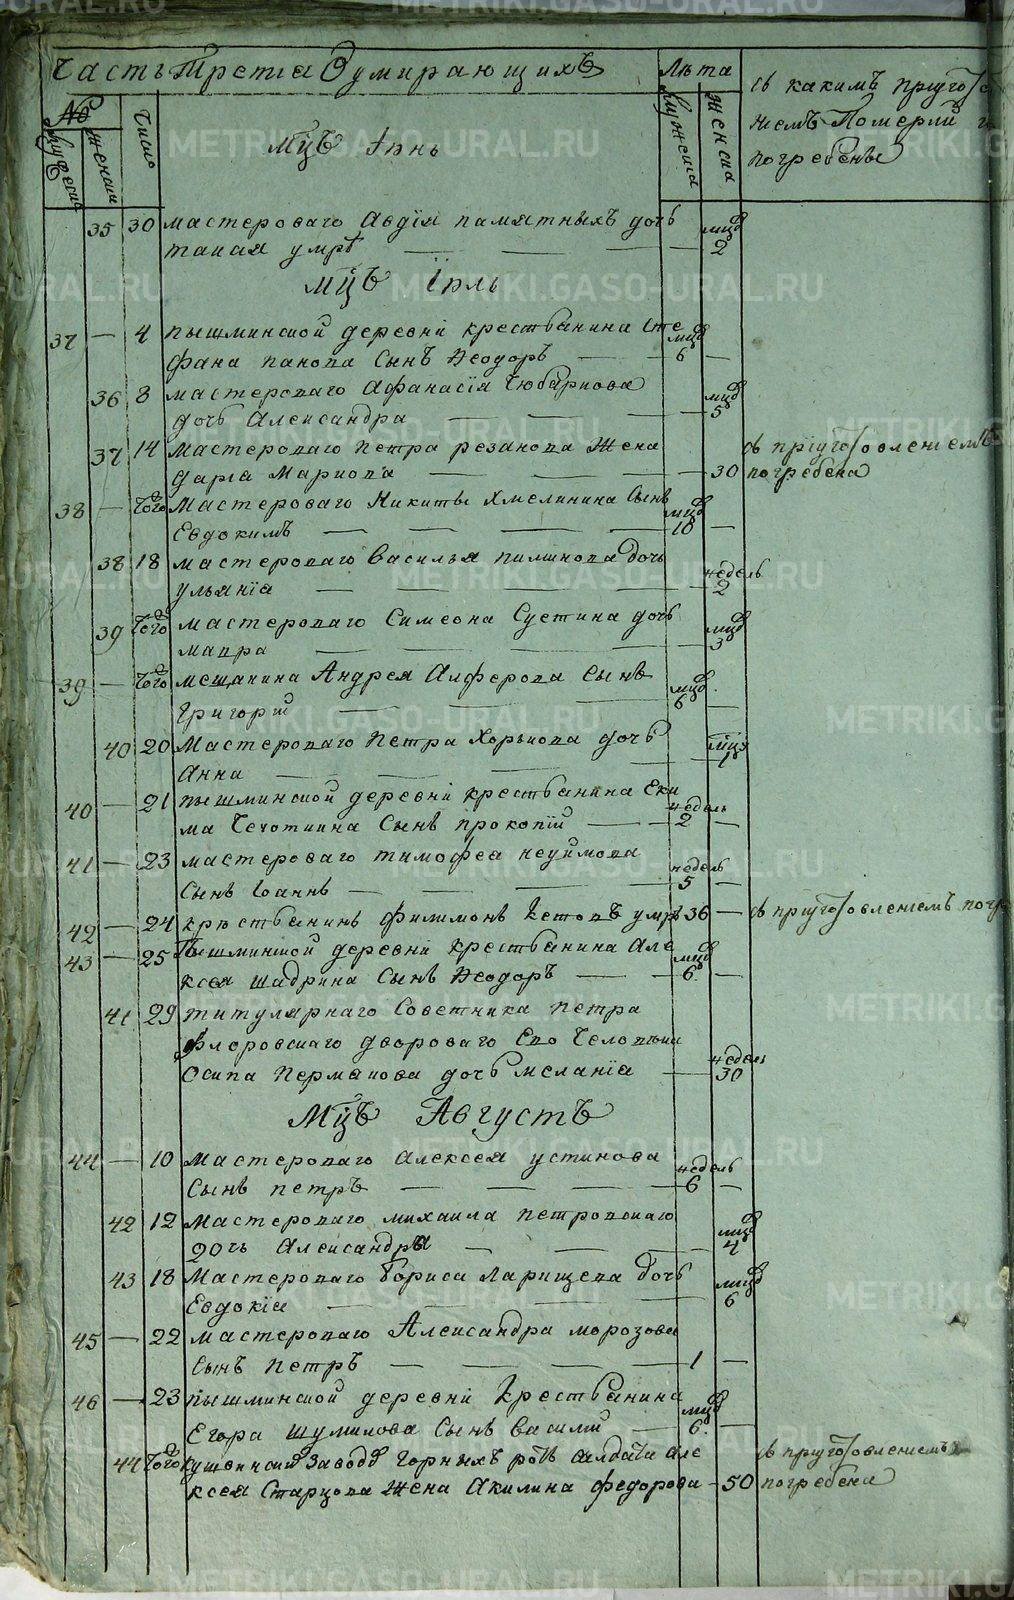 Часть Третiа О умирающихъ
Лѣта
съ какимъ пригото
№
число
женска
мужеска
женска
нiемъ Померли
погребены
Мцъ Iюнь
35 30 мастероваго Авдiя памятныхъ дочь
умрѣ — — — мцов 2
Мцъ Iюль
37 — 4 пышминской деревни крестьянина Сте
фана панова Сынъ Ѳеодоръ — — мцов 6 —
36 8 мастероваго Афанасiя Чюбаркова
дочь Александра — — — мцов 5
37 14 мастероваго Петра резанова жена
дарiа Маркова — — — 30
съ прiуготовленiемъ
погребена
38 — того мастероваго Никиты Хмелинина Сынъ
Евдокимъ — — — — мцов 10 —
38 18 мастероваго Василья дочь
ульянiа — — — — недель 2
39 того мастероваго Симеона Суетина дочь
мавра — — — — мцов 3
39 — того мещанина Андрея Алферова Сынъ
Григорiй — — — мцов 6 —
40 20 Мастероваго Петра Хорькова дочь
Анна — — — — мцъ 1
40 — 21 пышминской деревни крестьянина Еки
ма Чечоткина Сынъ прокопiй — — недель 2 —
41 — 23 мастероваго тимофеа неуймова
Сынъ Iоаннъ — — — — недель 5 —
42 — 24 крѣстьянинъ филимонъ Кетовъ умрѣ 36 —
съ прiуготовленiемъ погр
43 — 25 Пышминской деревни крестьянина Але
ксея шадрина Сынъ Ѳеодоръ — — мцов 6 —
41 29 титулярнаго Советника петра
Флоровскаго двороваго Его Человека
Осипа Пермакова дочь меланiа — недель 30
Мцъ Августъ
44 — 10 мастероваго алексея устинова
Сынъ петръ — — — — недель 6 —
42 12 Мастероваго михаила петровскаго
дочь Александра — — — мцов 4
43 18 Мастероваго Бориса Ларищева дочь
Евдокiа — — — — мцов 6
45 — 22 мастероваго Александра морозова
Сынъ Петръ — — — — 1 —
46 — 23 пышминской деревни Крестьянина
Егора шумилова Сынъ василiй — мцов 6 —
44 того кушвинскаго заводу Горныхъ ротъ салдата але
ксея Старцова жена Акилина федорова — 50
съ прiуготовленiемъ
погребена
METRIKI.GASO-URAL.RU